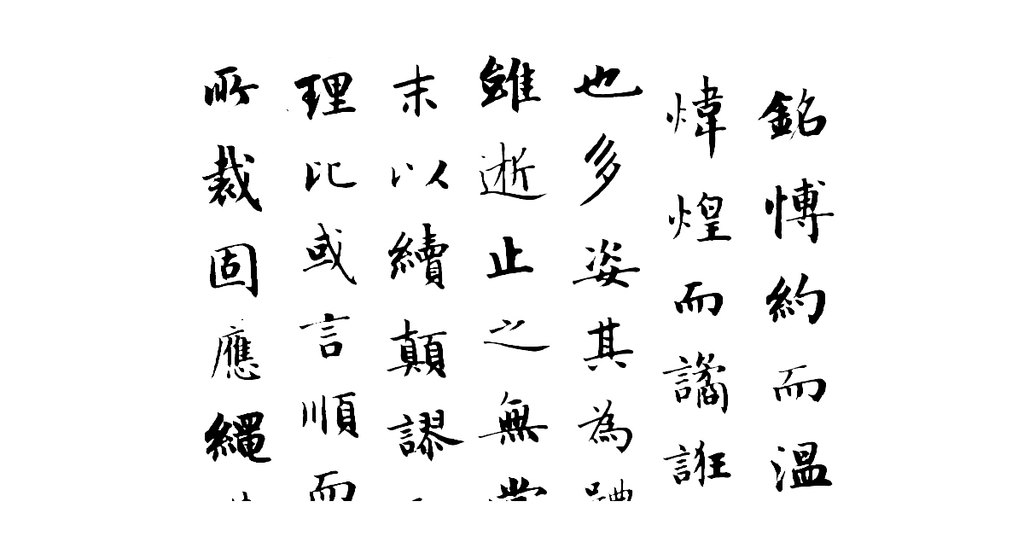 銘愽約而溫
煒煌而譎誑
也多姿其為
雖逝止之無
末以續顛謬
理比或言順而
所裁固應繩